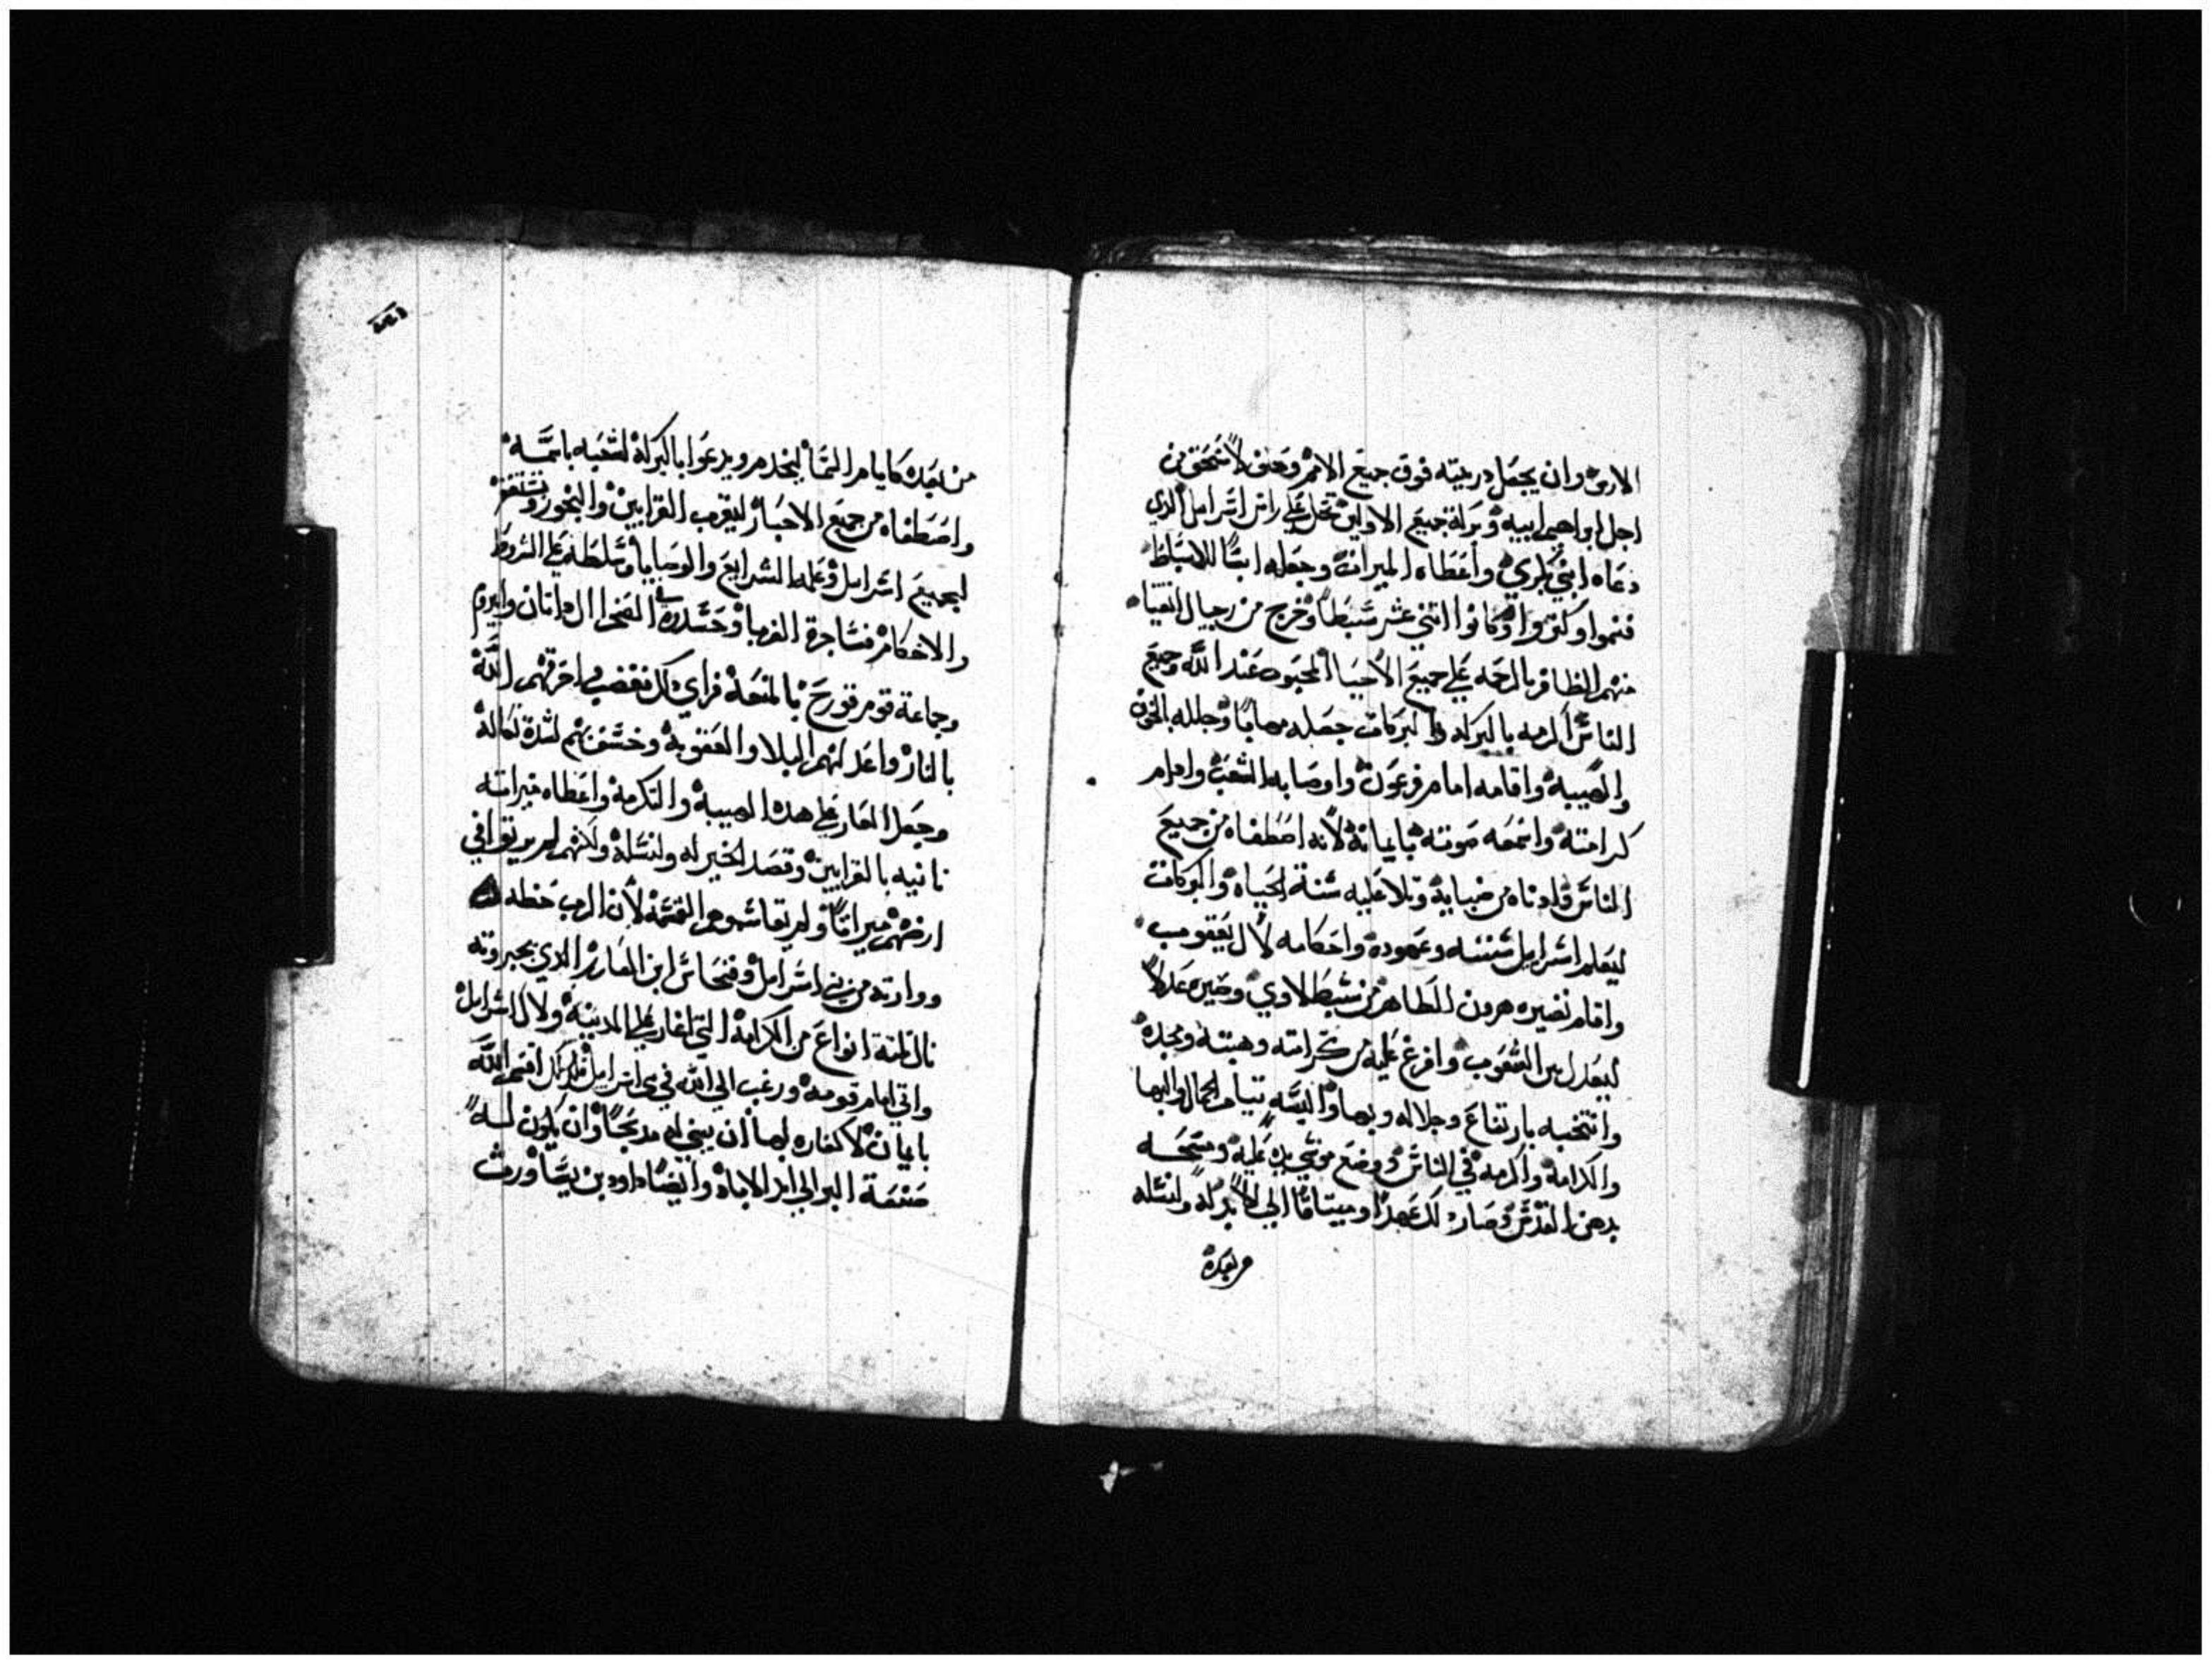 الارض وان يجعل دريته فوق جميع الامم وحلف لاسحق من
اجل ابراهيم ابيه وبركة جميع الاولين تحل علي راس اسراييل الدي
دعاه ابني بكري واعطاه الميراث وجعله ابًا للاسباط
فنموا وكتروا وكانوا اتني عشر سبطًا وخرج من رجال انقيا
منهم الظافر بالرحمه علي جميع الاحيا المحبوب عند الله وجميع
الناس اكرمه بالبركه والبركات جعله مهابًا وجلله بالخوف
والهيبه واقامه امام فرعون واوصا به الشعب واراه
كرامته واسمعه صوته بايمانه لانه اصطفاه من جميع
الناس وادناه من ضبابه وتلا عليه سنة الحياه والبركات
ليعلم اسراييل سننه وعهوده واحكامه لال يعقوب
واقام نصيره هرون الطاهر من سبط لاوي وصيره عدلاً
ليعدل بين الشعوب وافرغ عليه من كرامته وهيبته ومجده
وانتخبه بارتفاع وجلاله وبها والبسه تياب الجمال والبها
والكرامه واكرمه في الناس ووضع موسي يده عليه ومسحه
بدهن القدس وصار دلك عهدًا وميتاقًا الي الابد له ولنسله
من بعده
من بعده كايام السما ليخدم ويدعوا بالبركه لشعبه باسمه
واصطفاه من جميع الاحبار ليقرب القرابين والبخور ويستغفر
لجميع اسراييل وعلمه الشرايع والوصايا وسلطه علي الشروط
والاحكام فشاجره الغربا وحسدوه في الصحرا ال داتان وابيرم
وجماعة قوم قورح بالمنعه فراي دلك فغضب واحرقهم الله
بالنار واعد لهم البلا والعقوبه وخسف بهم لشدة نكاله
وجعل العار علي هده الهيبه والتكرمه واعطاه ميراته
تانيه بالقرابين وقصد الخير له ولنسله ولكنهم لم يرتوا في
ارضهم ميراتًا ولم يقاسموهم القسمه لان الرب حظه
ووارته من بني اسراييل وفنحاس ابن العازر الدي بجبروته
نال تلتة انواع من الكرامه التي اغار علي المدينه ولال اسراييل
واتي امام قومه ورغب الي الله في بني اسراييل فلدلك اقسم الله
بايمان لا كفاره لها ان يبني له مدبحًا وان يكون لنسله
صنعة البر الي ابد الاباد وايضًا داود بن يسا ورت